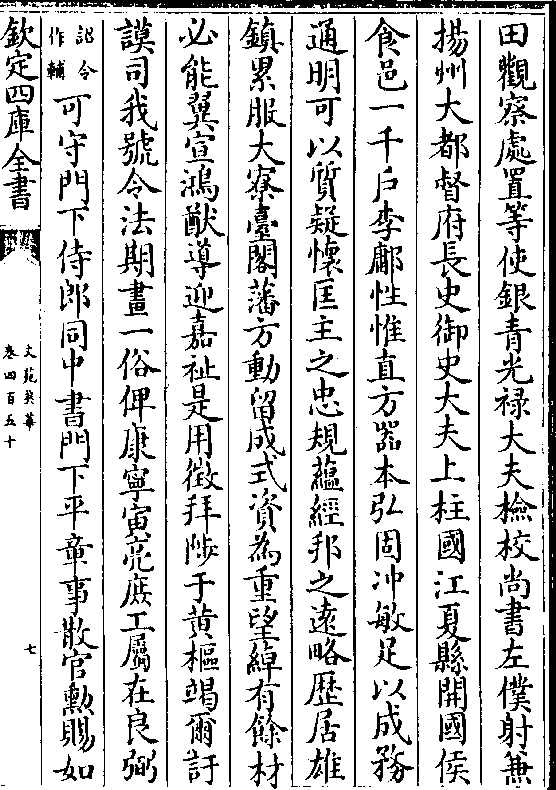 田觀察處置等使銀青光祿大夫檢校尚書左僕射兼
揚州大都督府長史御史大夫上柱國江夏縣開國侯
食邑一千戶李鄘性惟直方器本弘固沖敏足以成務
通明可以質疑懷匡主之忠規蘊經邦之遠略歷居雄
鎮累服大寮臺閣藩方動留成式資為重望綽有餘材
必能翼宣鴻猷導迎嘉祉是用徵拜陟于黃樞竭爾訏
謨司我號令法期畫一俗俾康寧寅亮庶工屬在良弼
詔令作輔可守門下侍郎同中書門下平章事散官勲賜如
欽定四庫全書
文苑英華
卷四百五十
七